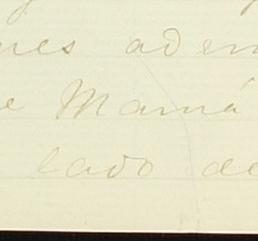 ues adem
e Mamá
lado de